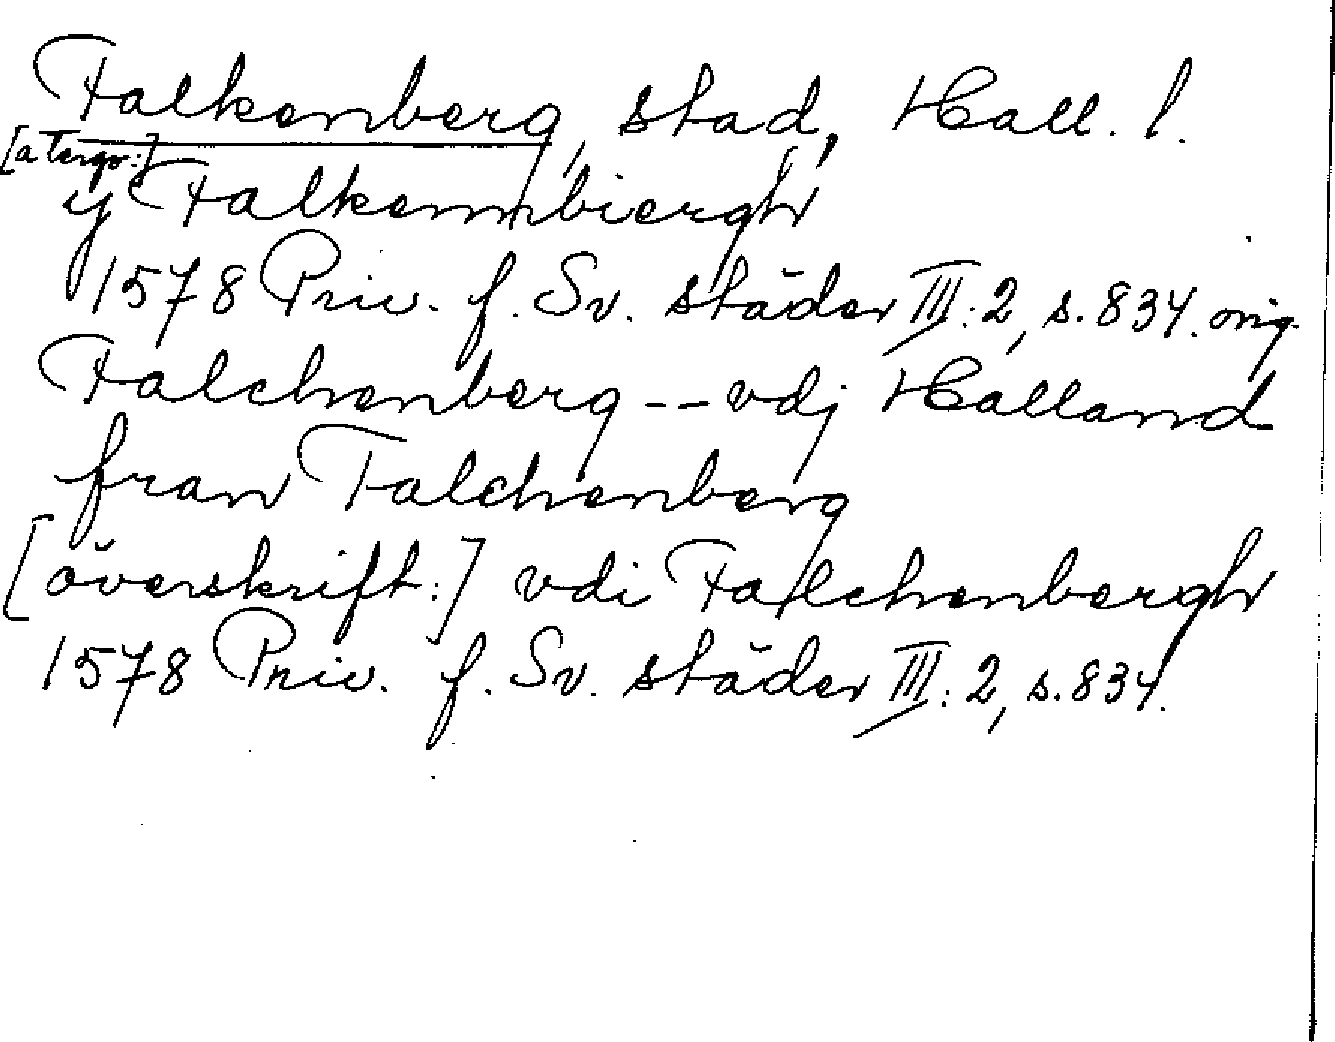 Falkenberg, stad, Hall. l.
[a tergo:]
y Falkennbiergh
1578 Priv. f. Sv. städer III:2, s. 834. orig.
Falchenberg -- vdj Halland
fran Falchenberg
[överskrift:] vdi Falchenbergh
1578 Priv. f. Sv. städer III:2, s. 834.